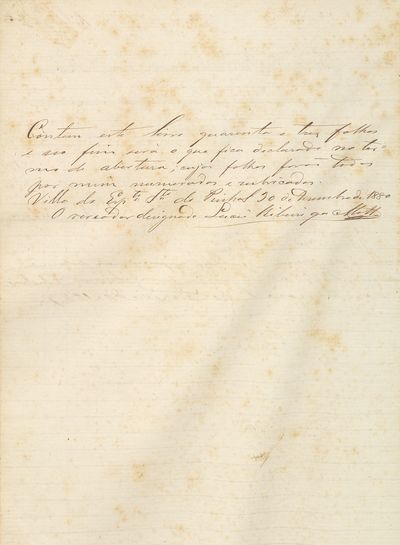 Contem este livro quarenta e tres folhas
e seo fim será o que fica declarado no ter-
mo de abertura; cujas folhas forão todas
por mim numeradas e rubricadas.
Villa do Esp.to S.to do Pinhal 30 de 1880
O vereador designado Ribeiro da Motta